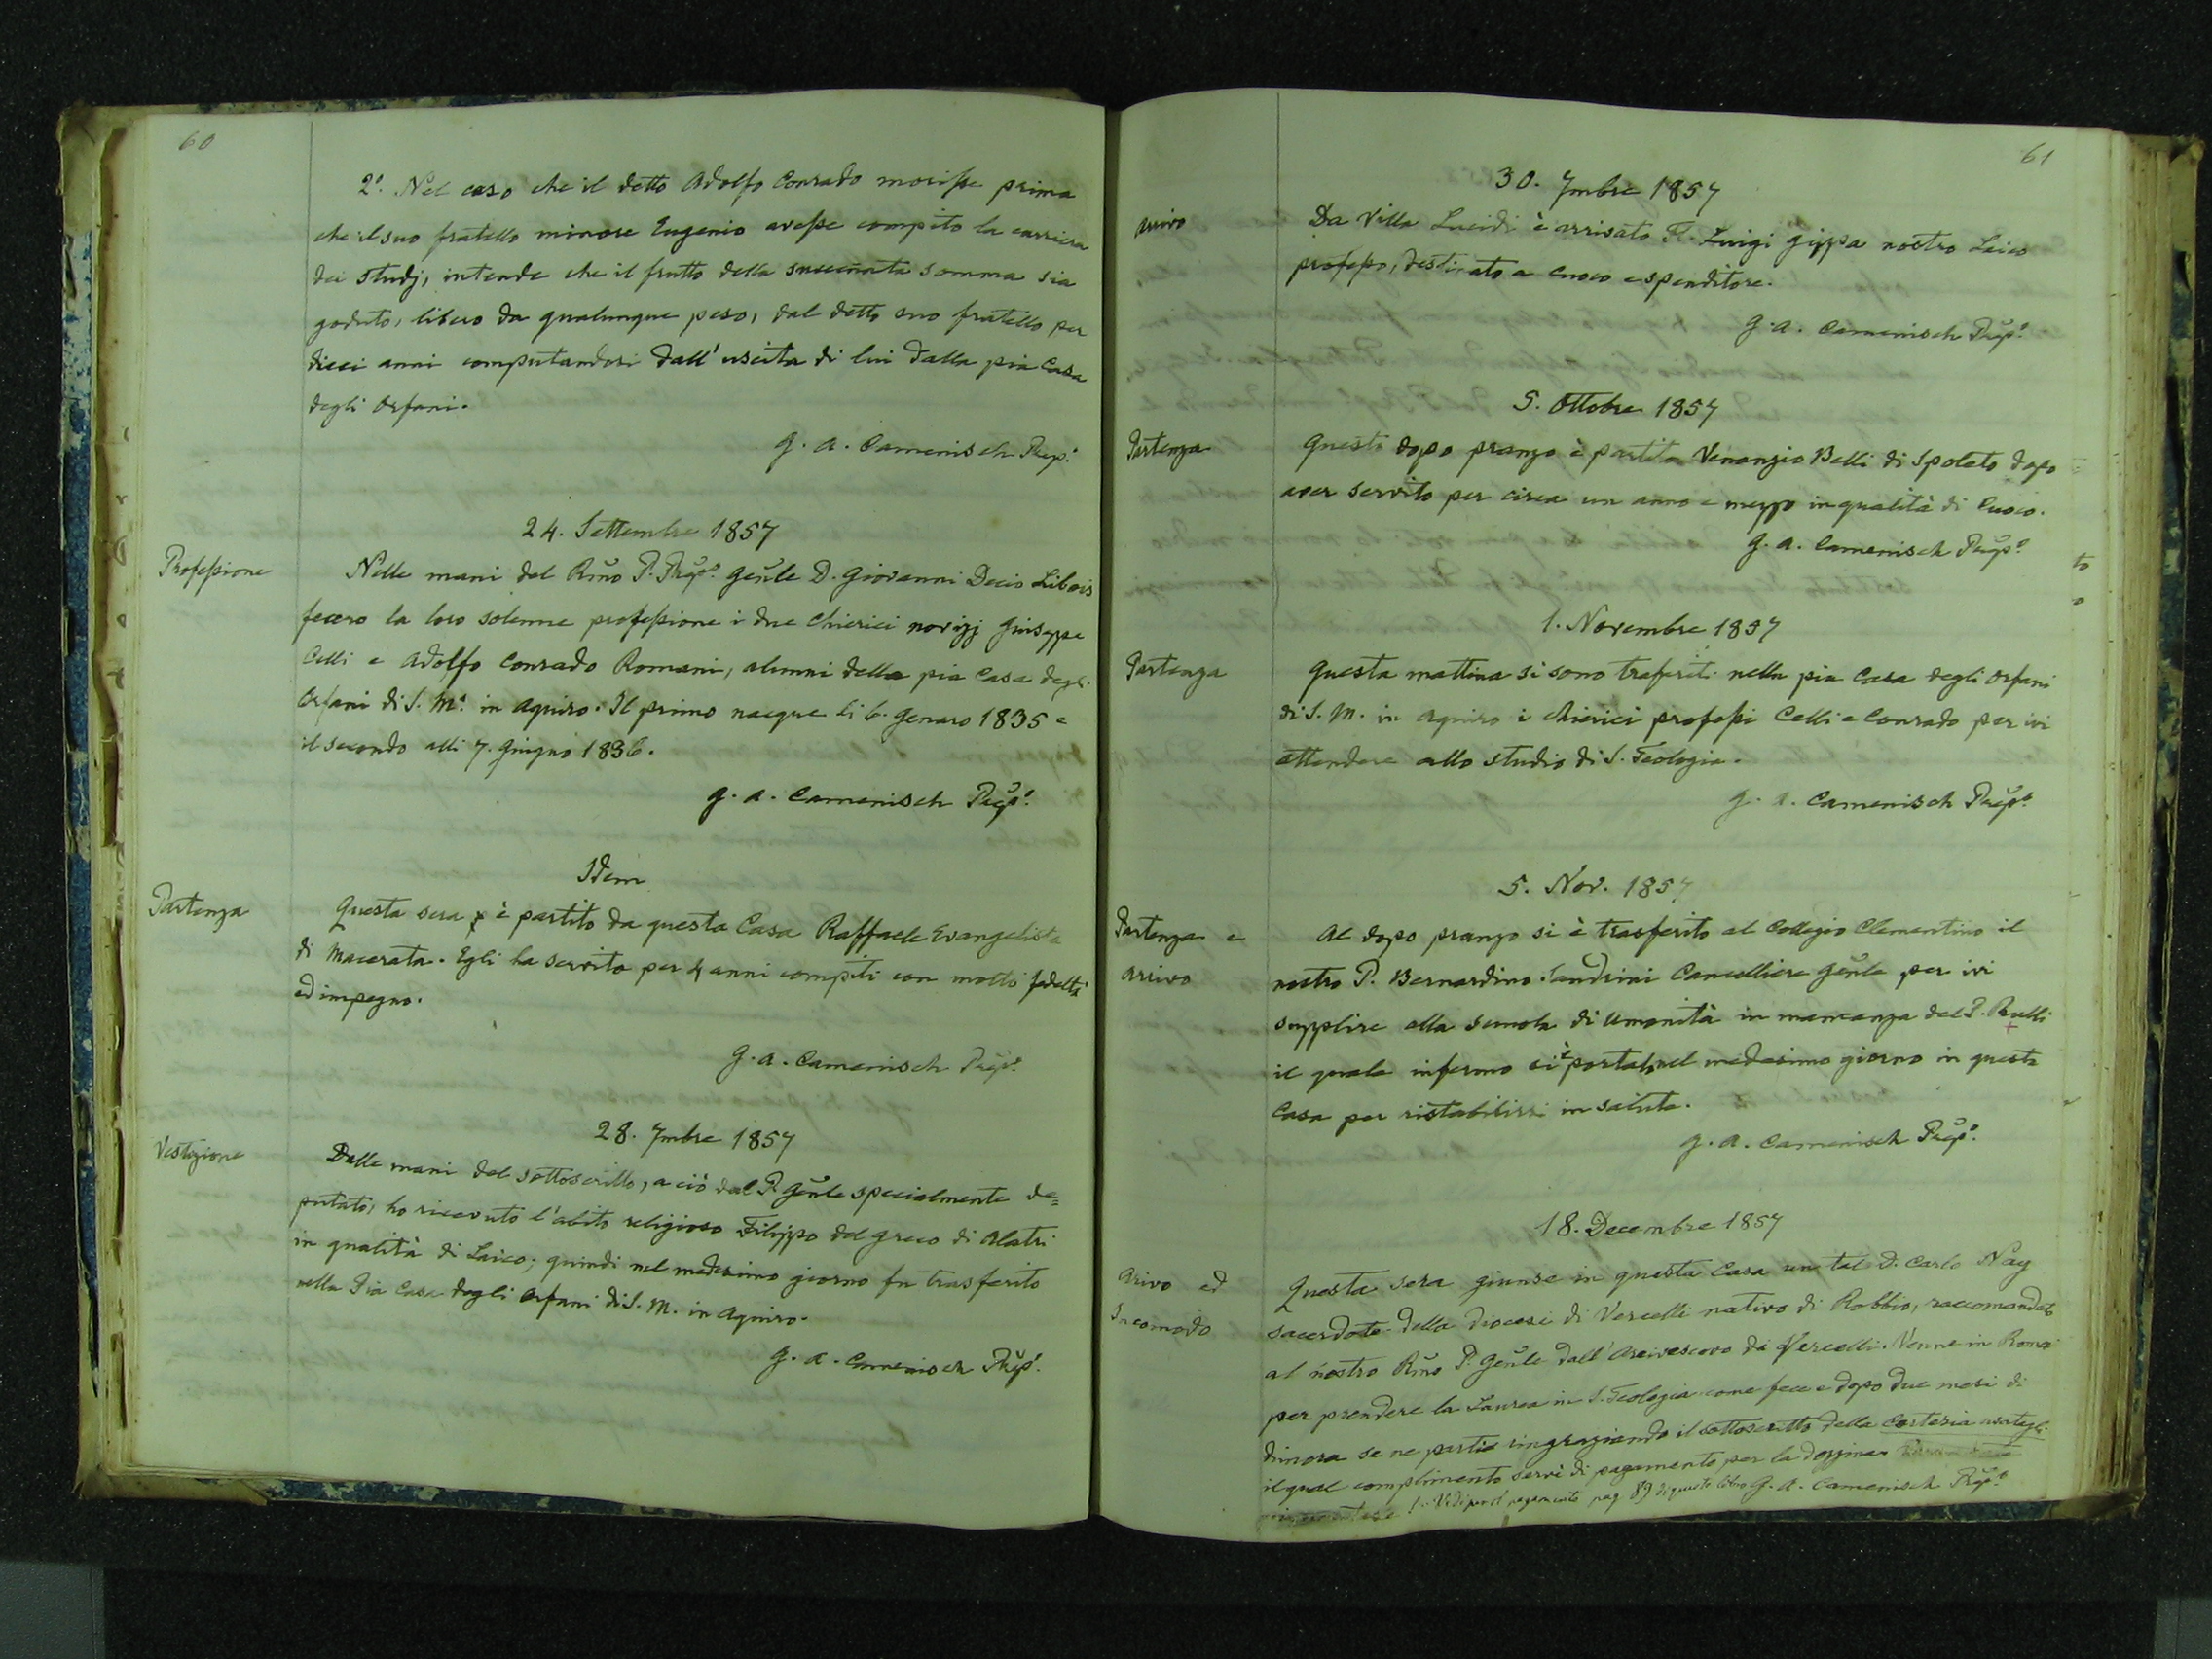 60
2.° Nel caso che il detto Adolfo Conrado morisse prima
che il suo fratello minore Eugenio avesse compito la carriera
dei studj, intende che il frutto della succennata somma sia
goduto, libero da qualunque peso, dal detto suo fratello per
dieci anni computandosi dall' uscita di lui dalla pia Casa
degli Orfani.
G. A. Camenisch Prep.°
24. Settembre 1857
Professione
Nelle mani del Rm̃o P. Prep.° Gen̄le D. Giovanni Decio Libois
fecero la loro solenne professione i due Chierici novizj Giuseppe
Celli e Adolfo Conrado Romani, alunni della pia Casa degli
Orfani di S. M.ª in Aquiro. Il primo nacque li 6. Genaro 1835 e
il secondo alli 7. Giugno 1836.
G. A. Camenisch Prep.°
Idem
Partenza
Questa sera è partito da questa Casa Raffaele Evangelista
di Macerata. Egli ha servito per 4 anni compiti con molti fedeltà
ed impegno.
G. A. Camenisch Prep.°
28. 7mbre 1857
Vestizione
Dalle mani del sottoscritto, a ciò dal P. Gen̄le specialmente de=
putato, ho ricevuto l'abito religioso Filippo del Greco di Alatri
in qualità di Laico; quindi nel medesimo giorno fu trasferito
nella Pia Casa degli Orfani di S. M. in Aquiro.
G. A. Camenisch Prep.°
61
30. 7mbre 1857
Arivo
Da Villa Lucidi è arrivato F. Luigi Gippa nostro Laico
professo, destinato a cuoco e spenditore.
G. A. Camenisch Prep.°
5. Ottobre 1857
Partenza
Questo dopo pranzo è partito Venanzio Belli di Spoleto dopo
aver servito per circa un anno e mezzo in qualità di Cuoco.
G. A. Camenisch Prep.°
1. Novembre 1857
Partenza
Questa mattina si sono trasferiti nella pia Casa degli Orfani
di S. M. in Aquiro i Chierici professi Celli e Conrado per ivi
attendere allo studio di S. Teologia.
G. A. Camenisch Prep.°
5. Nov. 1857
Partenza e
arivo
Al dopo pranzo si è trasferito al Collegio Clementino il
nostro P. Bernardino Sandrini Cancelliere Gen̄le per ivi
supplire alla scuola di Umanità in mancanza del P.
il quale infermo si è portato nel medesimo giorno in questa
Casa per ristabilirsi in salute.
G. A. Camenisch Prep.°
18. Decembre 1857
Arivo ed
Incomodo
Questa sera giunse in questa Casa un tal D. Carlo Nay
sacerdote della Diocesi di Vercelli nativo di Robbio, raccomandato
al nostro Rm̃o P. Gen̄le dall' Arcivescovo di Vercelli. Venne in Roma
per prendere la Laurea in S. Teologia come fece e dopo due mesi di
dimora se ne partie ringraziando il sottoscritto della Cortesia usatagli
il qual complimento servì di pagamento per la dozzina.
! Vedi per il pagamento pag 89 di questo libro G. A. Camenisch Prep.°